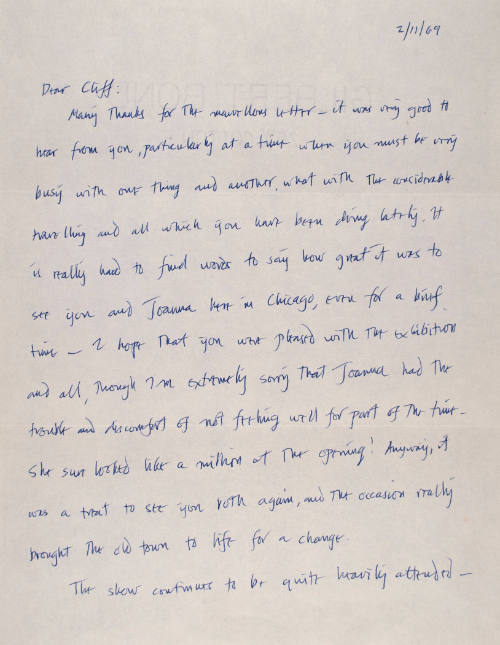 2/11/69
Dear Cliff:
Many Thanks for The marvellous letter — it was very good to
hear from you, particularly at a time when you must be very
busy with one thing and another, what with the considerable
travelling and all which you have been doing lately. It
is really hard to find words to say how great it was to
see you and Joanna here in Chicago, even for a brief
time — I hope That you were pleased with The exhibition
and all, Though I'm extremely sorry That Joanna had The
trouble and discomfort of not feeling well for part of The time —
She sure looked like a million at The opening! Anyway, it
was a treat to see you both again, and The occasion really
brought The old town to life for a change.
The show continues to be quite heavily attended —